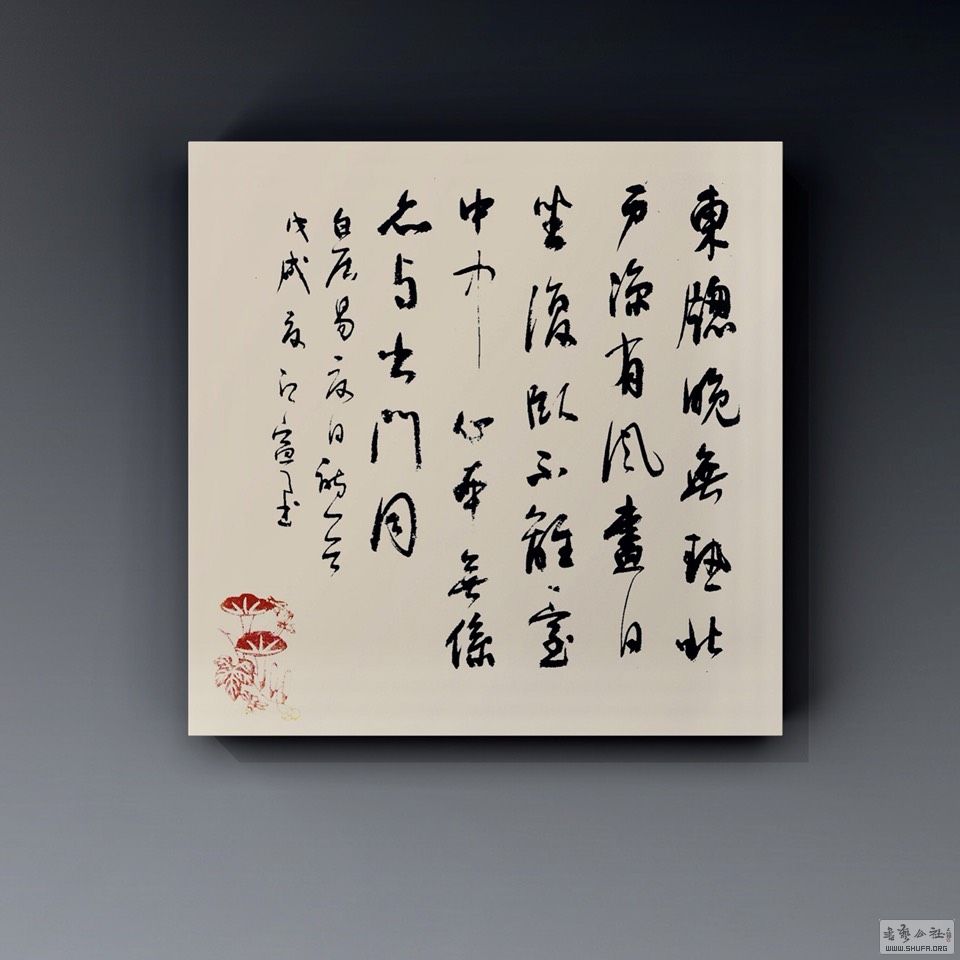 東牕晚無熱北
戶涼有風盡日
坐復臥不離室
中中心本無係
亦與出門同
白居易夏日詩云
戊戌夏江書
書藝公社
WWW.SHUFA.ORG